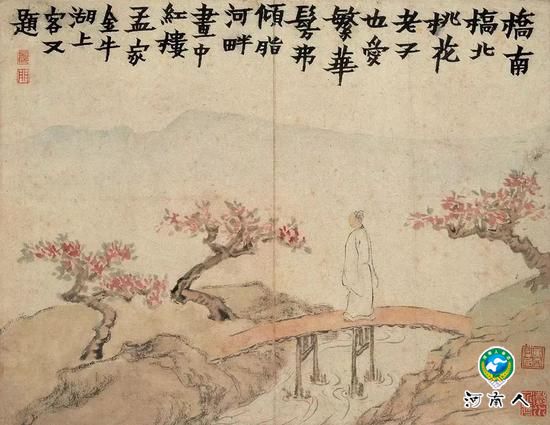 橋南
橋北
桃花
老子
也愛
繁華
髣弗
傾脂
河畔
畫中
紅樓
孟家
金牛
湖上
客又
題
河南人